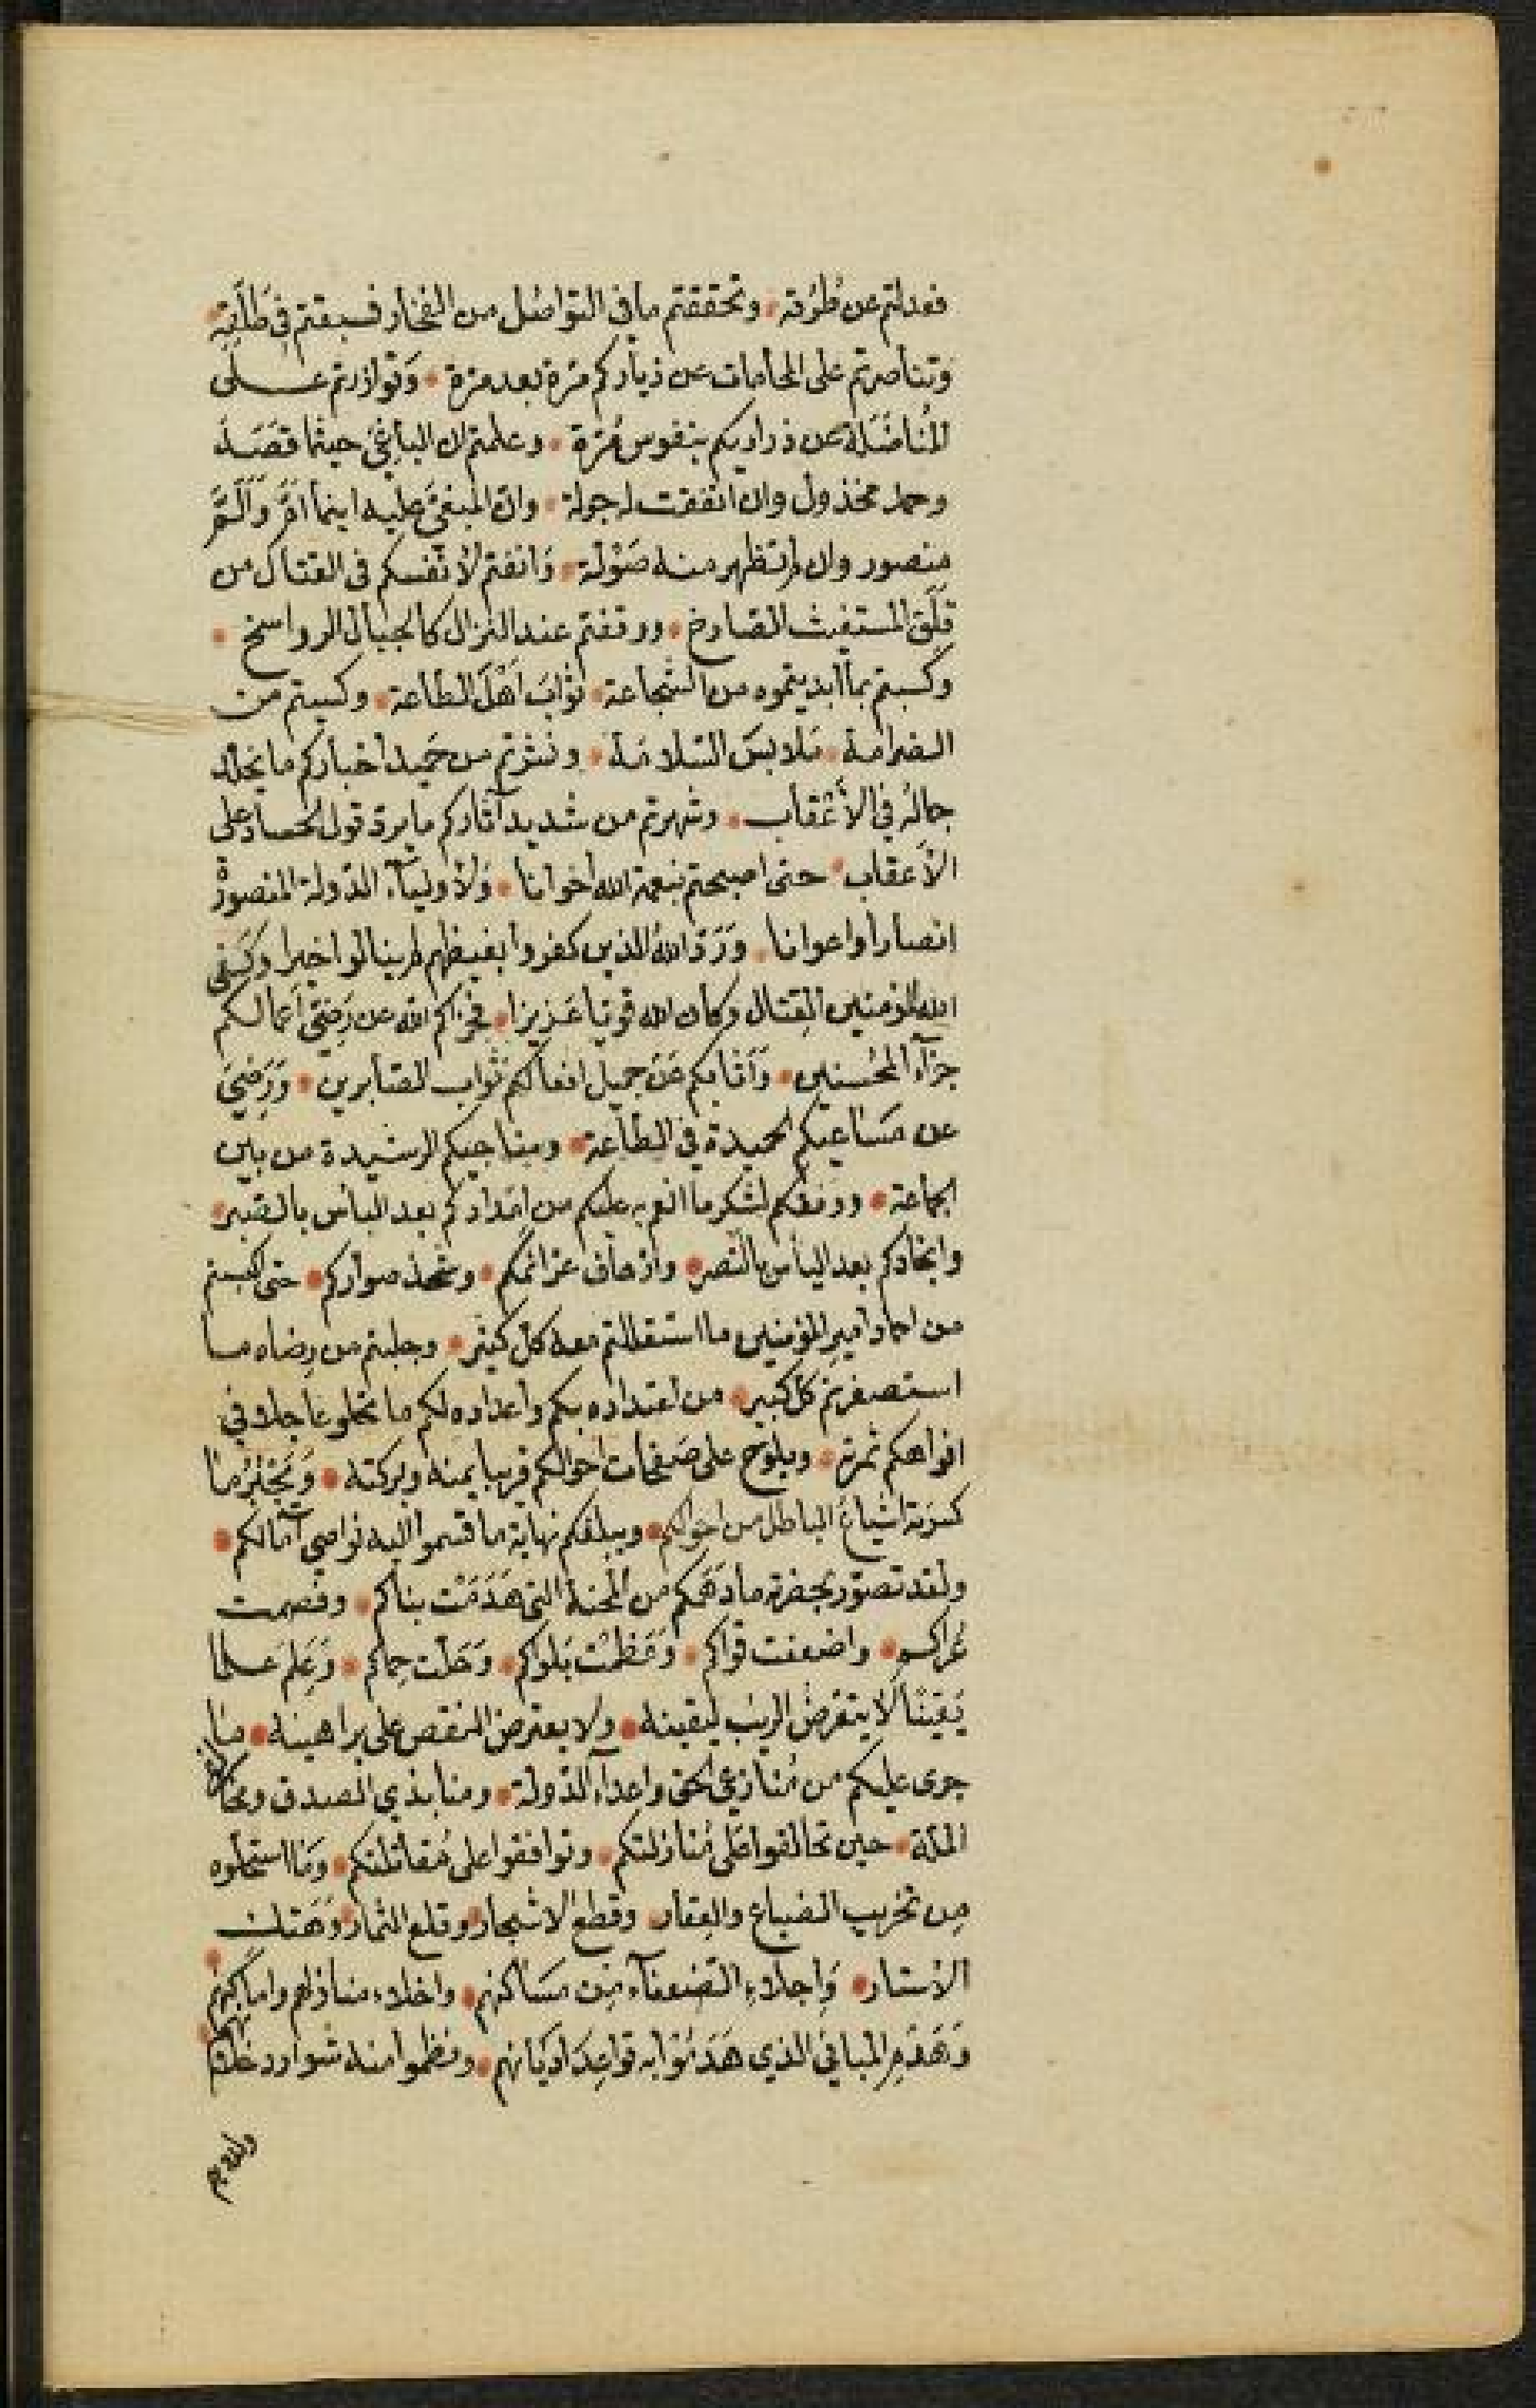 فعدلتم عن طرقه * وتحققتم ما فى التواصل من الفخار فسبقتم فِى طَلَقِهِ *
وتناصرتم على المحامات عن دياركم مرة بعد مرة * وَتوازرتم على
المُناضَلة عن ذراريكم بنفوس حُرّة * وعلمتم ان الباغِىَ حيثما قصَدَ
وحمل مخذول وان اتفقت له جولة * وان المبغىَّ عليه اينما
منصور وان لم تظهر منه صَوْلة * وَانفتم لأنفسكم فى القتال من
قَلَقِ المستغيث الصارخ * ووقفتم عند النزال كالجبال الرواسخ *
وكسبتم بما أبديتموه من الشجاعة * ثوابَ اَهْلَ الطاعة * وكسيتم من
الصرامة * ملابسَ السلامة * ونشرتم من حَميد اخباركم ما يخلد
جمالُه فى الأَعْقاب * وشهرتم من شديد آثاركم ما يرد قول الحساد على
الاَعقاب * حتى اصبحتم بنعمة الله اخوانا * وَلأوليآء الدّولة المنصورة
انصارا واعوانا * وَرَدّ اللهُ الذين كفروا بغيظهم لم ينالوا خيرا وكَفى
الله المؤمنين القِتال وكان الله قويّا عَزيزا * فجزاكم الله عن رَضِىّ أعمالكم
جزآء المحُسنين * وَأثابكم عَن جميل افعالكم ثواب الصابرين * وَرَضِىَ
عن مَسَاعيكم الحميدة فى الطاعة * ومناجيكم الرشيدة من بين
الجماعة * ووفقكم لشكر ما انعم به عليكم من اِمْدادكم بعد البأس بالصبر *
وانجادكم بعد اليأس بالنّصر * وارهاف عزائمكم * وشحذ صوارمكم * حتى كسبتم
من احماد اميرِ المؤمنين ما استقللتم معه كلّ كثير * وجلبتم من رِضاه ما
استصغرتم كلّ كبير * من اعتداده بكم وأعداده لكم ما تحلو عاجلا فى
افواهكم ثمرته * ويلوح على صَفَحات احوالكم قريبا يمنه وبركته * وَيَجْبُرُ ما
كسَرَته اشياعُ الباطل من احوالكم * ويبلغكم نهاية ما قسموا اليه نواصى آمالكم *
ولقد تصوّر بحضرته ما دَهَمكم من المحنة التى هَدَمَتْ بناكم * وفصمت
عُراكم * واضعفت قواكم * وَعَظمْت بَلواكم * وَحَلّت حِماكم * وَعَلِمَ علما
يَقينًا لا يتعَرضُ الريب ليقينه * ولا يعترض النقص على براهينه * ما
جرى عليكم من مُنازعى الحق واعدآء الدّولة * ومنابذى الصدق
الملّة * حين تحالفوا عَلى مُنازلتكم * وتوافقوا على مُقاتلتكم * وَما استحلّوه
مِن تخريب الضياع والعِقار * وقطع الاشجار وقلع الثمار * وَهَتك
الأستار * وَاِجلاءِ الضعفآء مِن مسَاكنهم * واخلاء منازلهم واماكنهم
وَهَدْمِ المبانى الذى هَدَمُوا به قواعِدَ اديَانهم * ونظموا منه شوارد